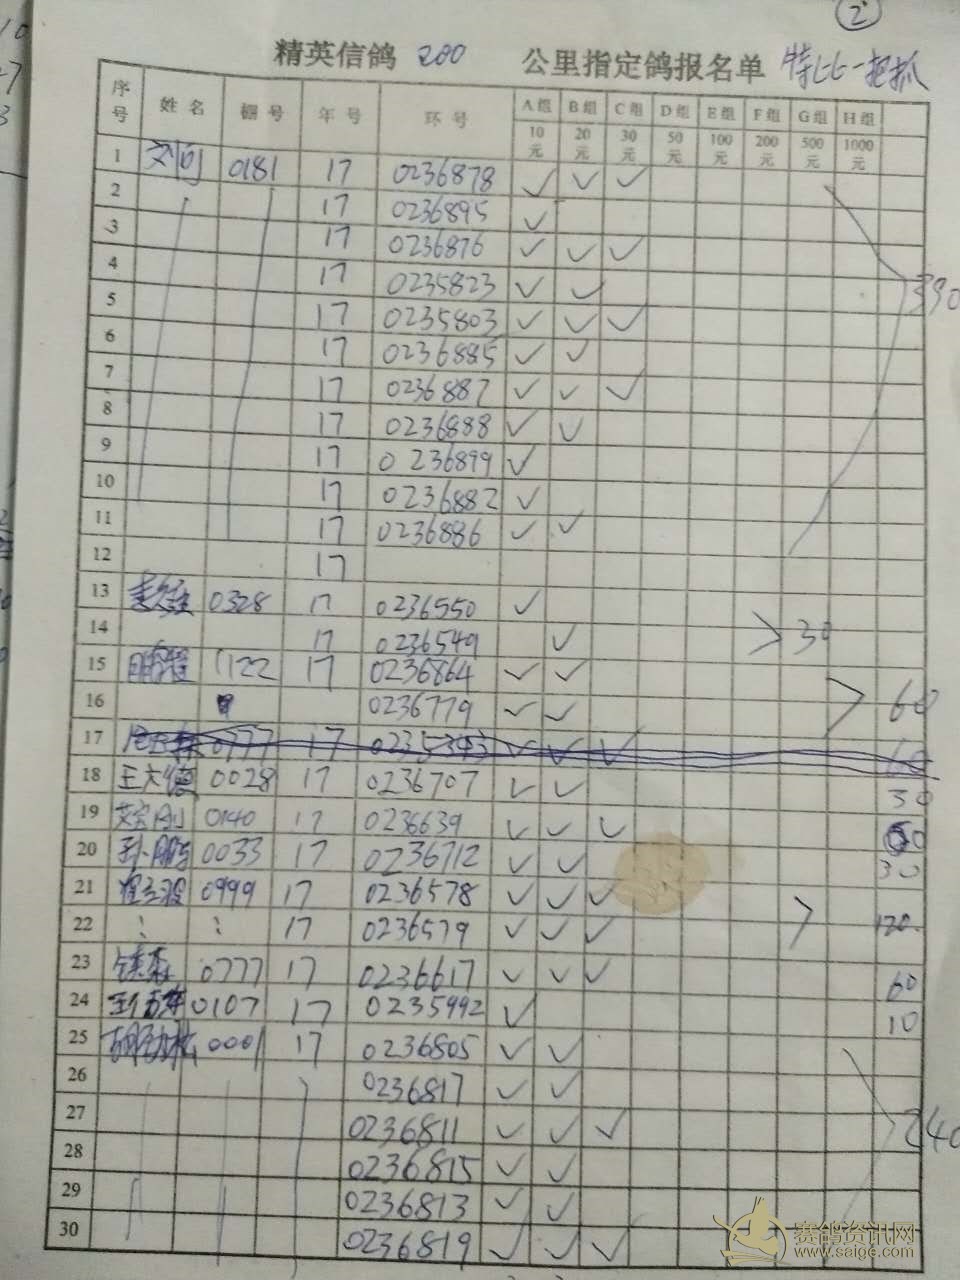 2
精英信鸽 200 公里指定鸽报名单 特比一把抓
序号 姓名 棚号 年号 环号 A组 B组 C组 D组 E组 F组 G组 H组
10元 20元 30元 50元 100元 200元 500元 1000元
1 0181 17 0236878 ✓ ✓ ✓
2 17 0236895 ✓
3 17 0236876 ✓ ✓ ✓
4 17 0235823 ✓ ✓ 390
5 17 0235803 ✓ ✓ ✓
6 17 0236885 ✓ ✓
7 17 0236887 ✓ ✓ ✓
8 17 0236888 ✓ ✓
9 17 0236899 ✓
10 17 0236882 ✓
11 17 0236886 ✓ ✓
12 17
13 0328 17 0236550 ✓
14 17 0236549 ✓ 30
15 1122 17 0236864 ✓ ✓
16 0236779 ✓ ✓ 60
17 0777 17 0235343 ✓ ✓ ✓ 60
18 王大德 0028 17 0236707 ✓ ✓ 30
19 0140 17 0236639 ✓ ✓ ✓ 60
20 孙鹏 0033 17 0236712 ✓ ✓ 30
21 0999 17 0236578 ✓ ✓ ✓
22 : : 17 0236579 ✓ ✓ ✓ 120
23 0777 17 0236617 ✓ ✓ ✓ 60
24 0107 17 0235992 ✓ 10
25 胡劲松 0001 17 0236805 ✓ ✓
26 0236817 ✓ ✓
27 0236811 ✓ ✓ ✓ 240
28 0236815 ✓ ✓
29 0236813 ✓ ✓
30 0236819 ✓ ✓ ✓
赛鸽资讯网
www.saige.com